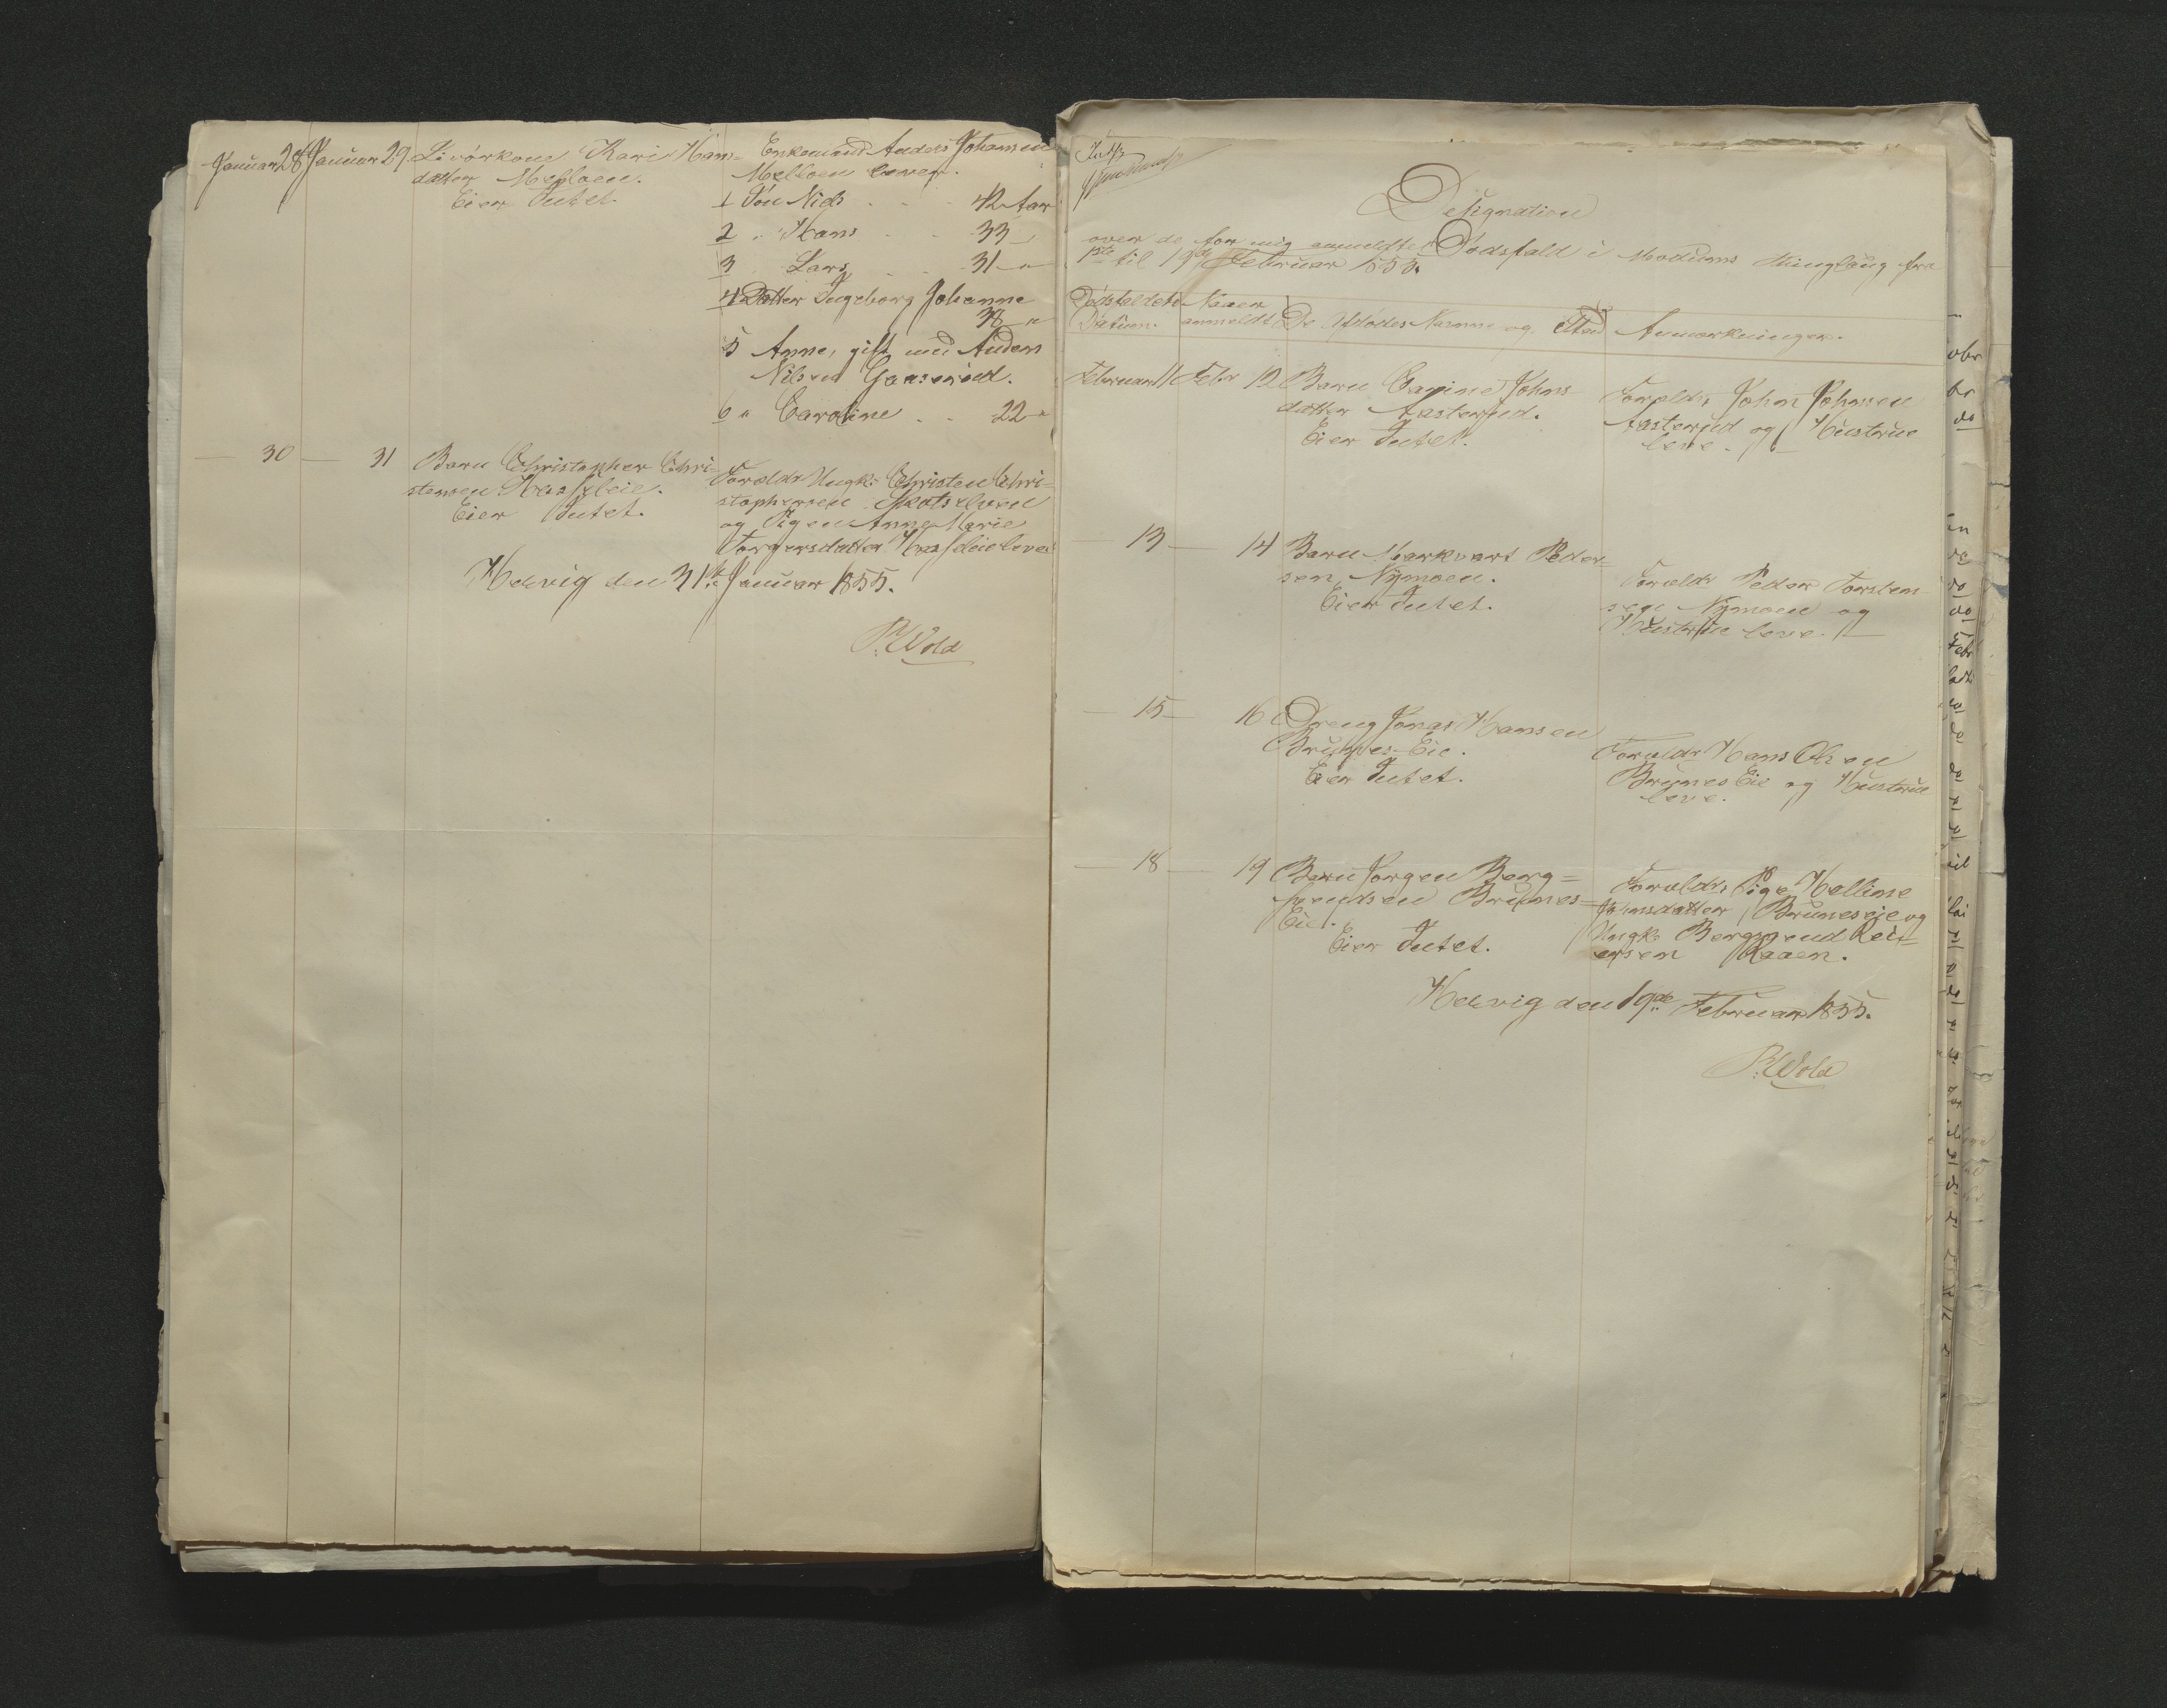 Januar 28 Januar 29. Livörkone Kari Hans=
datter Melloen.
Eier Intet.
Enkemand Anders Johansen
Melloen lever.
1 Sön Niels . . . 42 Aar
2 " Hans . . 33 "
3 Lars . . 31 "
4 Datter Ingeborg Johanne
38 "
5 Anne, gift med Anders
Nilsen Gaaserud.
6 " Caroline . . 22 "
— 30 — 31 Barn Christopher Chri-
stensen
Eier Intet.
Forældr Ungk: Christen Chri=
stophersen Skotselven
og Pigen Anne Marie
Torgersdatter lever
Hærvig den 31te Januar 1855.
P: Wold
Designation
over de for mig anmeldte Dödsfald i Modums Thinglaug fra
1ste til 19de Februar 1855.
Dödsfaldets
Datum.
Naar
anmeldt
De Afdödes Navne og Sted
Anmærkninger.
Februar 11 Febr 12 Barn Carine Johns
datter Aasterud.
Eier Intet.
Forældr. John Johnsen
Aasterud og Hustrue
leve.
— 13 — 14 Barn Markvart Peder=
sen Nymoen.
Eier Intet.
Forældr Peder Torsten
sen Nymoen og
Hustrue leve.
— 15 — 16 Dreng Jonas Hansen
Brunes-Eie.
Eier Intet.
Forældr Hans Olsen
Brunes Eie og Hustrue
leve.
— 18 — 19 Barn Jörgen Berg=
svendsen Brunes=
Eie.
Eier Intet.
Forældr. Pige Helline
Johnsdatter Bruneseie og
Ungk: Bergsvend Rei=
ersen Raaen.
Hærvig den 19de Februar 1855.
P: Wold